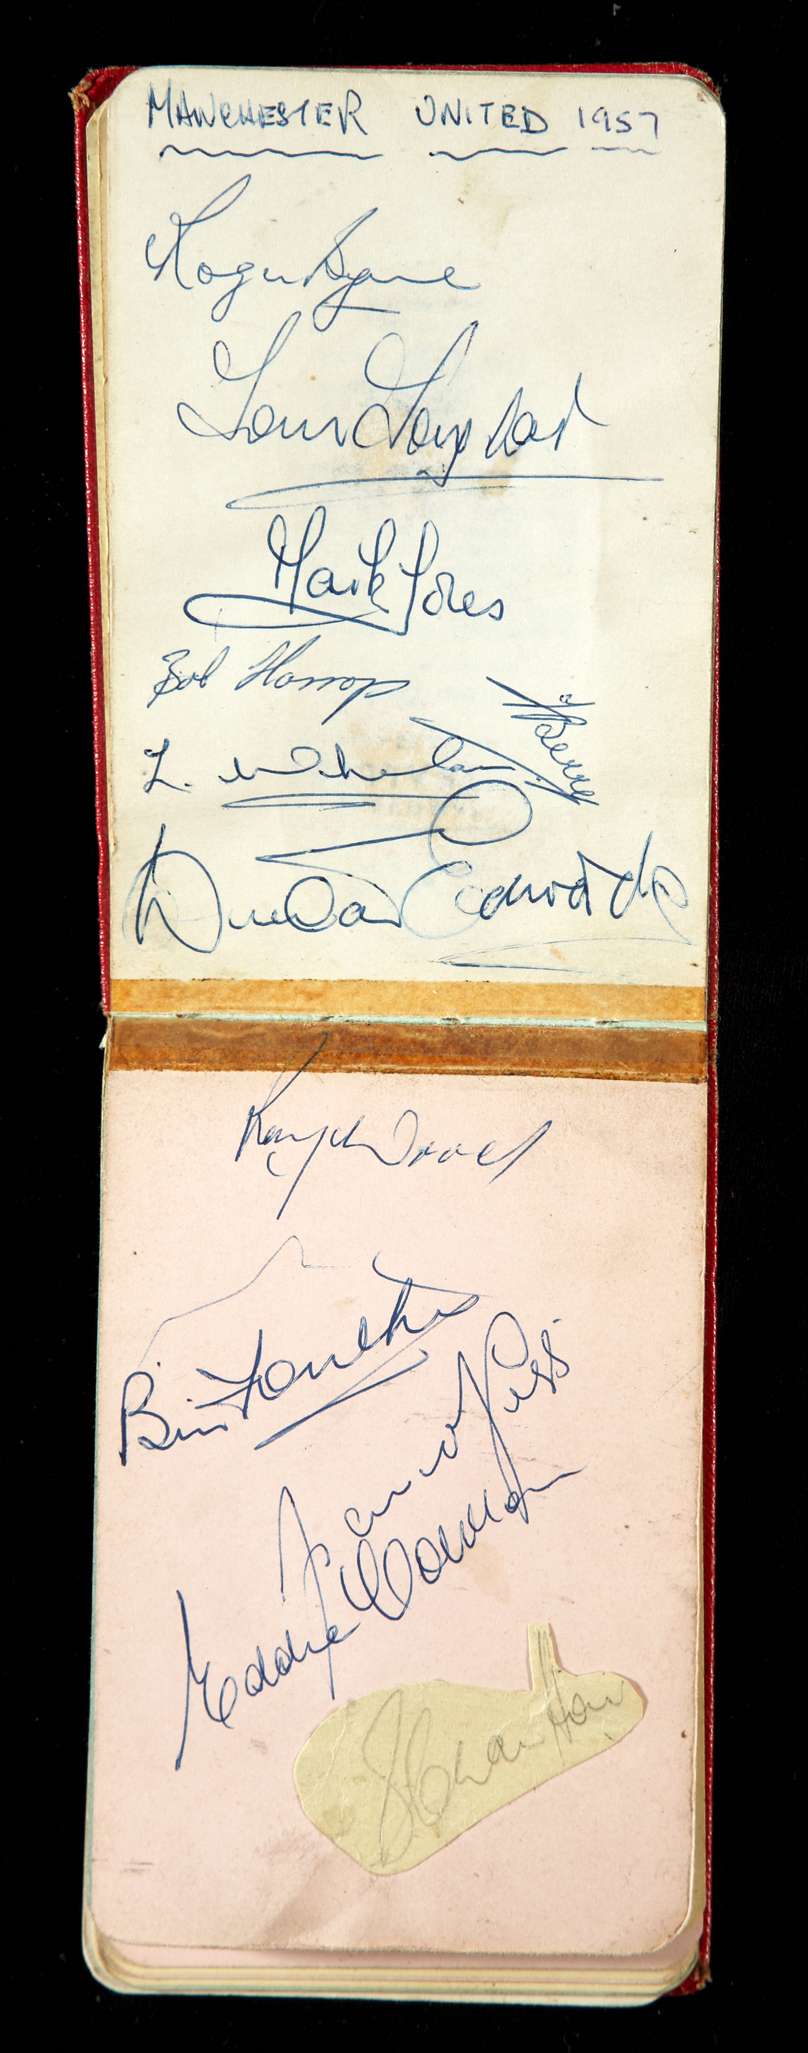 MANCHESTER UNITED 1957
Roger Byrne
Tommy Taylor
Mark Jones
Bob Harrop
J Berry
L. Whelan
Duncan Edwards
Ray Wood
Bill Foulkes
Eddie Colman
B Charlton